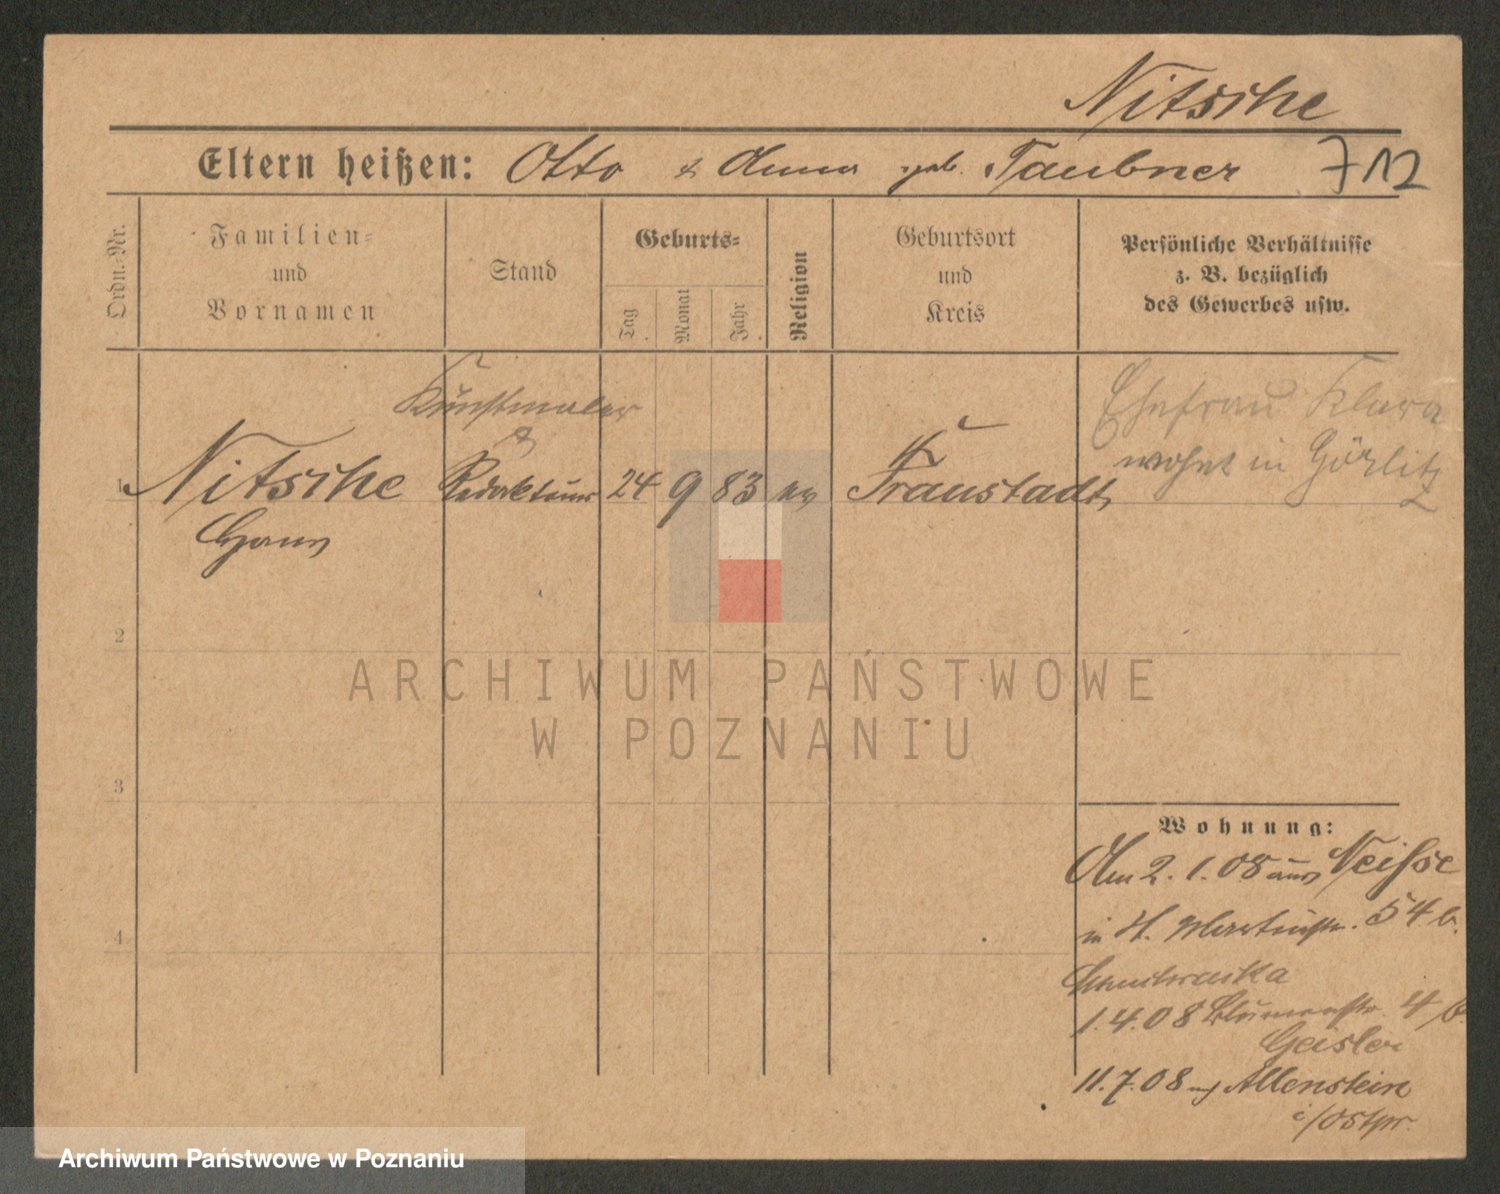 Nitsche
Eltern heißen: Otto & Anna geb. Taubner 712
Ordn.-Nr.
Familien-
und
Vornamen
Stand
Geburts-
Tag
Monat
Jahr
Religion
Geburtsort
und
Kreis
Persönliche Verhältnisse
z. B. bezüglich
des Gewerbes usw.
Kunstmaler
Ehefrau Klara
wohnt in Görlitz
1 Nitsche Redakteur 24 9 83 ev Fraustadt
Hans
2
ARCHIWUM PAŃSTWOWE
W POZNANIU
3
4
Wohnung:
Am 2.1.08 aus Neisse
in H. Martinstr. 54 b.
1.4.08 Blumenstr. 4 b.
Geisler
11.7.08 n/ Allenstein
i/Ostpr.
Archiwum Państwowe w Poznaniu